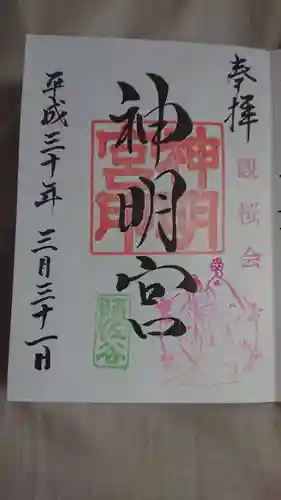 奉拝
観桜会
神明宮
神明宮
阿佐谷
平成三十年 三月三十一日